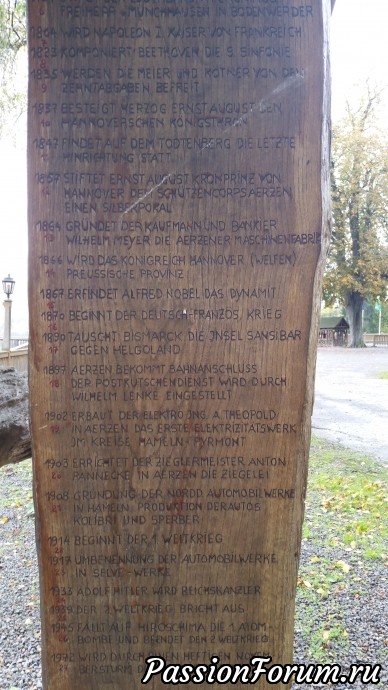 FREIHERR V. MÜNCHHAUSEN IN BODENWERDER
1804 WIRD NAPOLEON I. KAISER VON FRANKREICH
1823 KOMPONIERT BEETHOVEN DIE 9. SINFONIE
1835 WERDEN DIE MEIER UND KÖTNER VON DEN
ZEHNTABGABEN BEFREIT
1837 BESTEIGT HERZOG ERNST AUGUST DEN
HANNOVERSCHEN KÖNIGSTHRON
1847 FINDET AUF DEM TOOTENBERG DIE LETZTE
HINRICHTUNG STATT
1857 STIFTET ERNST AUGUST KRONPRINZ VON
HANNOVER DEM SCHÜTZENCORPS AERZEN
EINEN SILBERPOKAL
1864 GRÜNDET DER KAUFMANN UND BANKIER
WILHELM MEYER DIE AERZENER MASCHINENFABRIK
1866 WIRD DAS KÖNIGREICH HANNOVER (WELFEN)
PREUSSISCHE PROVINZ
1867 ERFINDET ALFRED NOBEL DAS DYNAMIT
1870 BEGINNT DER DEUTSCH-FRANZÖS. KRIEG
1890 TAUSCHT BISMARCK DIE INSEL SANSIBAR
GEGEN HELGOLAND
1897 AERZEN BEKOMMT BAHNANSCHLUSS
DER POSTKUTSCHENDIENST WIRD DURCH
WILHELM LENKE EINGESTELLT
1902 ERBAUT DER ELEKTROING. A. THEOPOLD
IN AERZEN DAS ERSTE ELEKTRIZITÄTSWERK
IM KREISE HAMELN-PYRMONT
1903 ERRICHTET DER ZIEGLERMEISTER ANTON
PANNECKE IN AERZEN DIE ZIEGELEI
1908 GRÜNDUNG DER NORDD. AUTOMOBILWERKE
IN HAMELN. PRODUKTION DER AUTOS
KOLIBRI UND SPERBER
1914 BEGINNT DER 1. WELTKRIEG
1917 UMBENENNUNG DER AUTOMOBILWERKE
IN SELVE-WERKE
1933 ADOLF HITLER WIRD REICHSKANZLER
1939 DER 2. WELTKRIEG BRICHT AUS
1945 FÄLLT AUF HIROSCHIMA DIE 1. ATOM-
BOMBE UND BEENDET DEN 2. WELTKRIEG
1972 WIRD DURCH DEN HEFTIGEN
PassionForum.ru